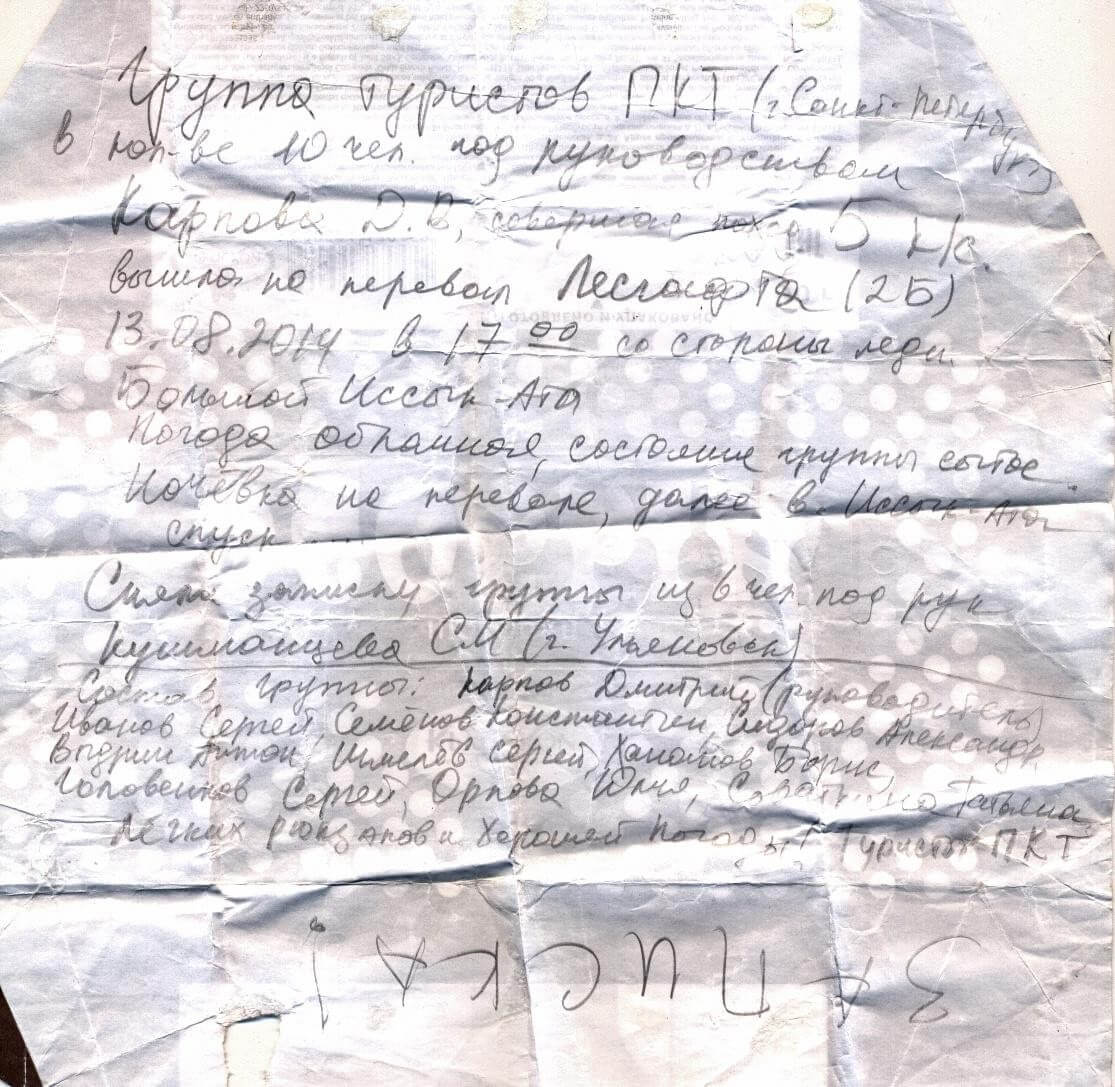 Группа туристов ПКТ (г. Санкт-Петербург)
в кол-ве 10 чел. под руководством
Карпова Д.В, совершая пох-д 5 к/с.
вышла на перевал Лесгафта (2Б)
13.08.2014 в 17 00 со стороны ледн.
Большой Иссык-Ата
Погода облачная, состояние группы сытое.
Ночёвка на перевале, далее в. Иссык-Ата
спуск .....
Сняли записку группы из 6 чел. под рук
Кушманцева СМ (г. Ульяновск)
Состав группы: Карпов Дмитрий (руководитель)
Иванов Сергей, Семёнов Константин, Сидоров Александр,
Выдрин Антон, Шмелёв Сергей, Борис,
Головенков Сергей, Орлова Юлия, Татьяна
Лёгких рюкзаков и Хорошей погоды! Туристы ПКТ
ЗАПИСКА!
ИЗГОТОВЛЕНО И УПАКОВАНО